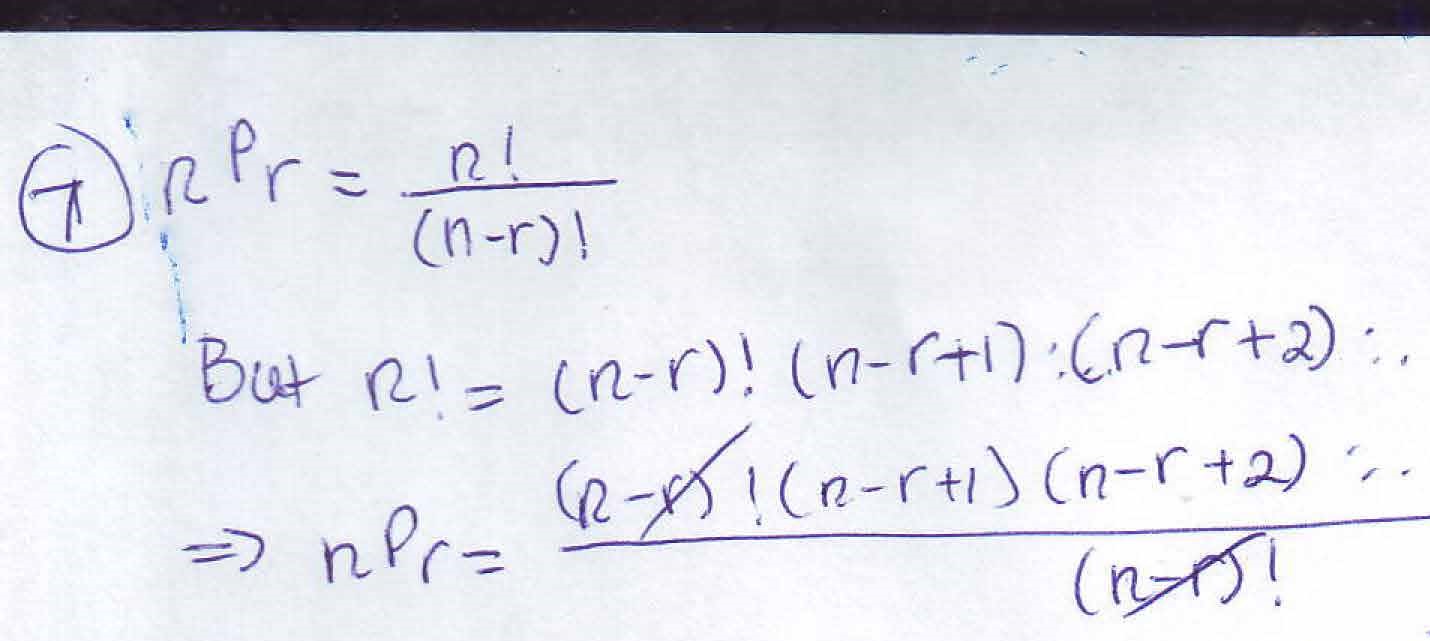 7 nPr = n! / (n-r)!
But n! = (n-r)! (n-r+1).(n-r+2)...
⇒ nPr = (n-r)!(n-r+1)(n-r+2)... / (n-r)!